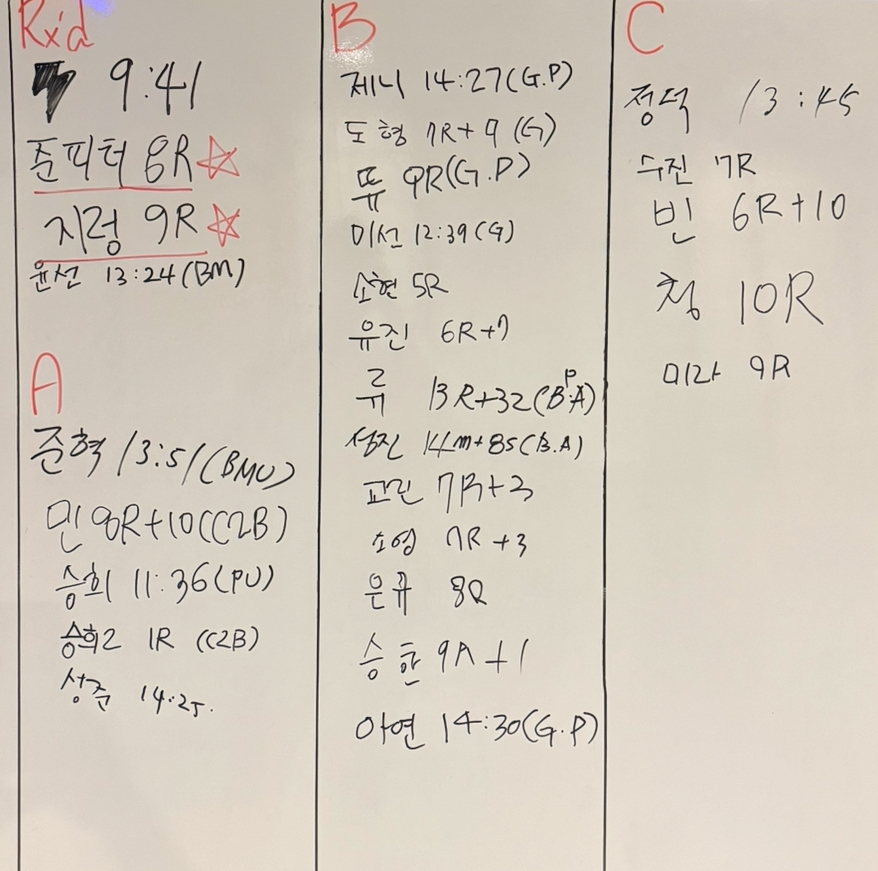 Rx'd
9:41
준피터 8R
지령 9R
윤선 13:24(BM)
A
준혁 13:51(BMU)
민 8R+10(C2B)
승희 11:36(PU)
승희2 1R (C2B)
성준 14:25.
B
제니 14:27(G.P)
도형 7R+9 (G)
뜌 9R(G.P)
미선 12:39(G)
소현 5R
유진 6R+7
류 13R+32(B.P.A)
성진 14m+85(B.A)
교린 7R+3
소영 7R+3
은규 8R
승한 9R+1
아연 14:30(G.P)
C
정덕 13:45
수진 7R
빈 6R+10
청 10R
미라 9R